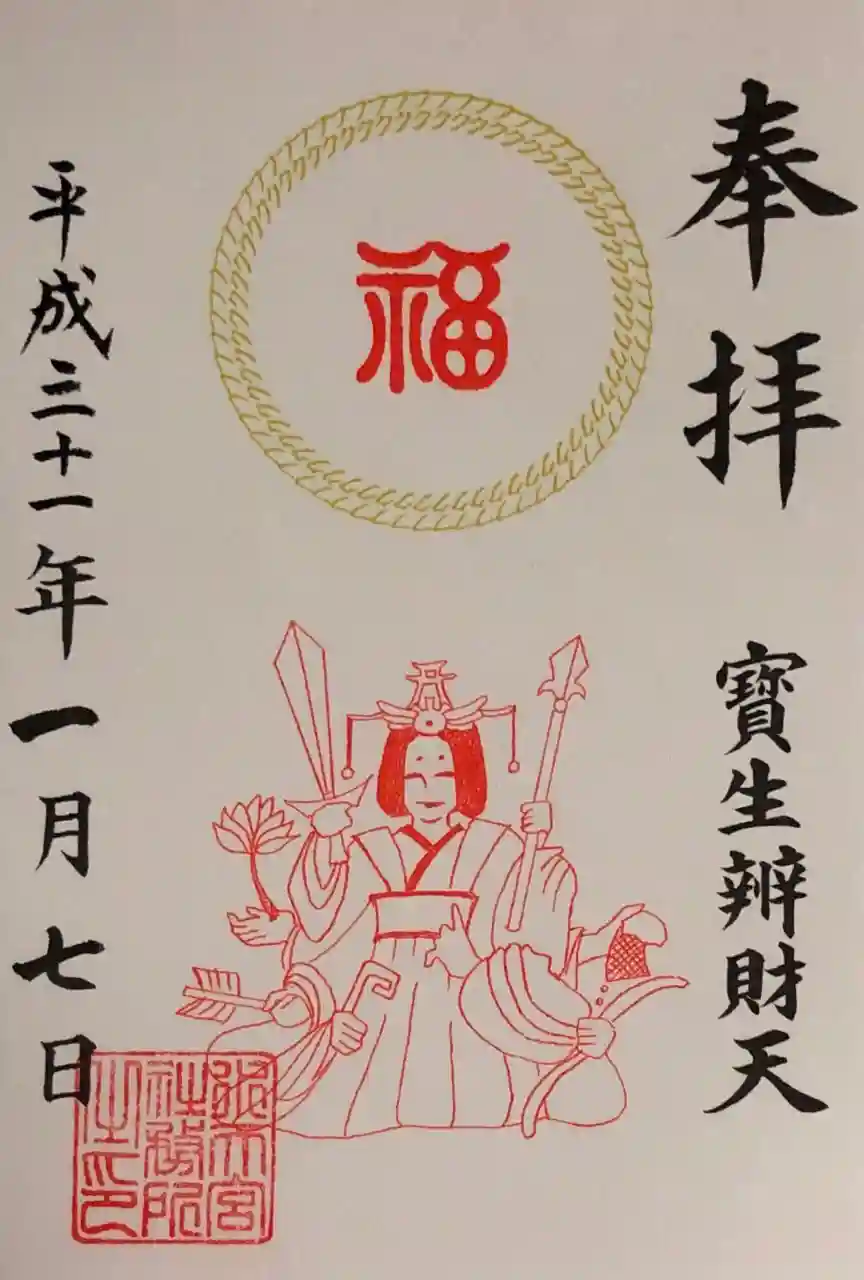 奉拝
寶生辨財天
福
平成三十一年一月七日
社務所
之印